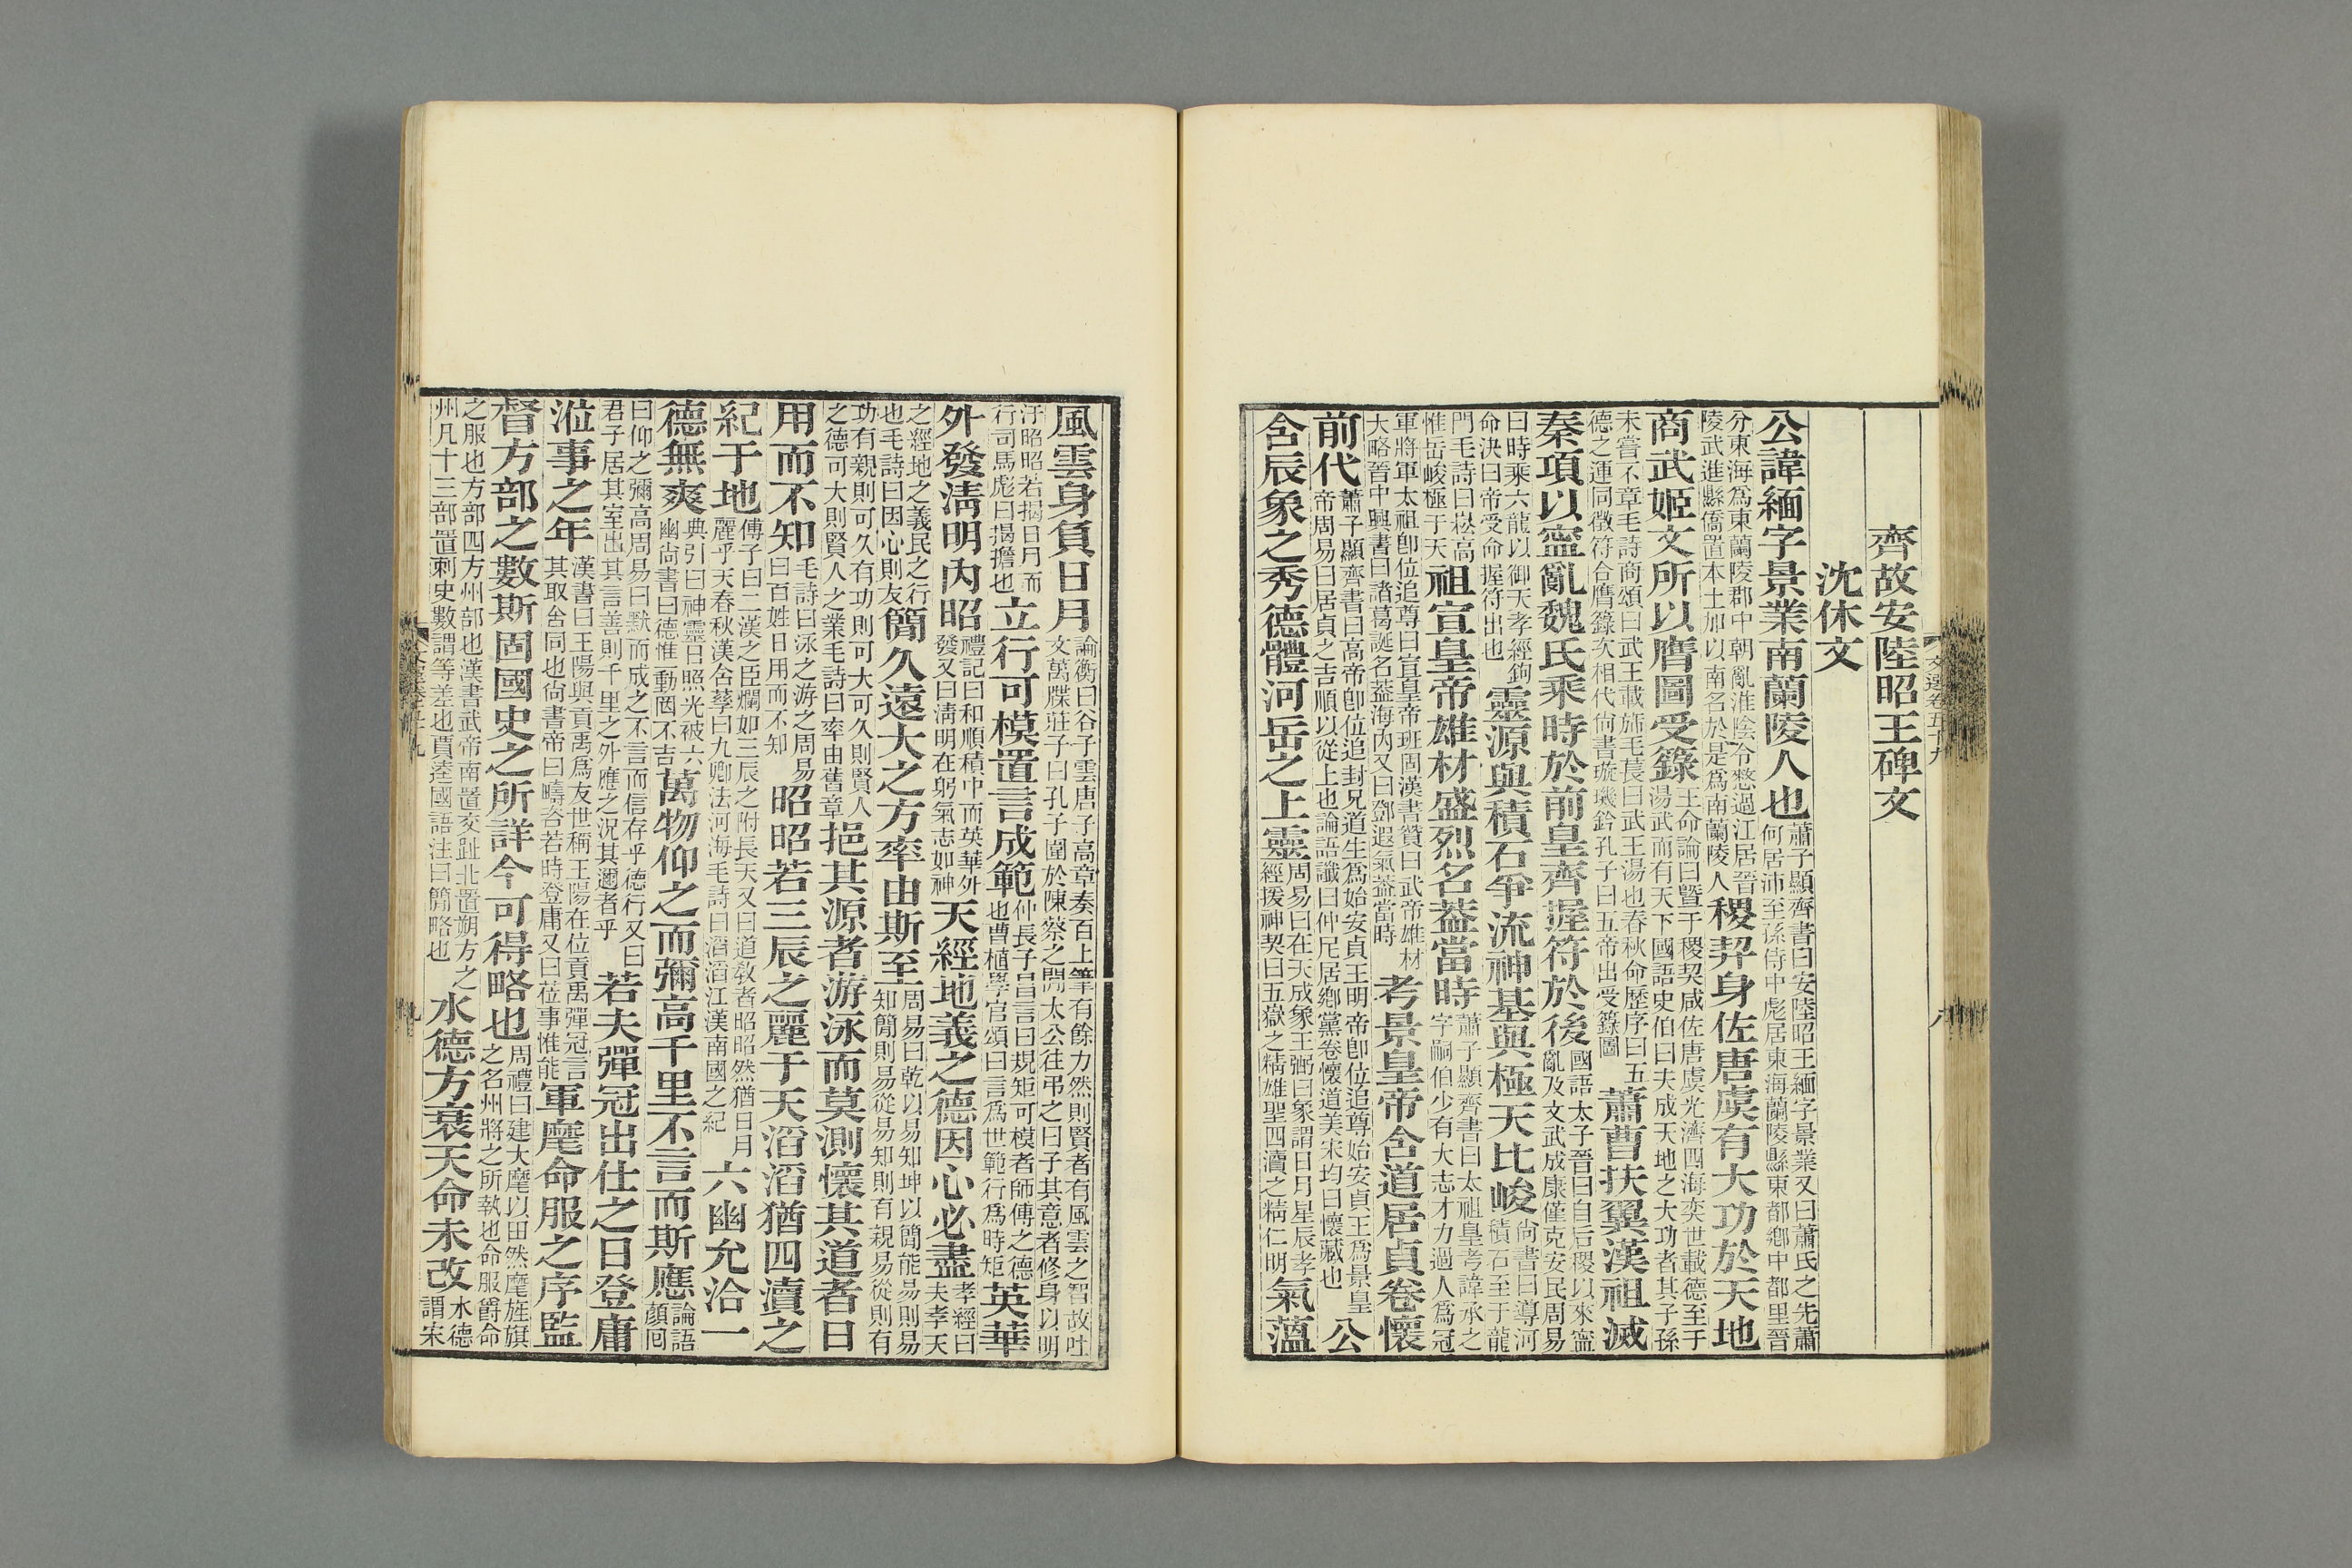 齊故安陸昭王碑文
沈休文
公諱緬字景業南蘭陵人也蕭子顯齊書曰安陸昭王緬字景業又曰蕭氏之先蕭何居沛至孫侍中彪居東海蘭陵縣東都鄉中都里晉
分東海爲東蘭陵郡中朝亂淮陰令整過江居晉陵武進縣僑置本土加以南名於是爲南蘭陵人稷契身佐唐虞有大功於天地
商武姬文所以膺圖受籙王命論曰曁于稷契咸佐唐虞光濟四海奕世載德至于湯武而有天下國語史伯曰夫成天地之大功者其子孫
未嘗不章毛詩商頌曰武王載斾毛萇曰武王湯也春秋命歷序曰五德之運同徵符合膺籙次相代尙書璇璣鈐孔子曰五帝出受籙圖蕭曹扶翼漢祖滅
秦項以寧亂魏氏乘時於前皇齊握符於後國語太子晉曰自后稷以來寧亂及文武成康僅克安民周易
曰時乘六龍以御天孝經鉤命決曰帝受命握符出也靈源與積石爭流神基與極天比峻尙書曰導河積石至于龍
門毛詩曰崧高惟岳峻極于天祖宣皇帝雄材盛烈名葢當時蕭子顯齊書曰太祖皇考諱承之字嗣伯少有大志才力過人爲冠
軍將軍太祖卽位追尊曰宣皇帝班固漢書贊曰武帝雄材大略晉中興書曰諸葛誕名葢海內又曰鄧遐氣葢當時考景皇帝含道居貞卷懷
前代蕭子顯齊書曰高帝卽位追封兄道生爲始安貞王明帝卽位追尊始安貞王爲景皇帝周易曰居貞之吉順以從上也論語讖曰仲尼居鄉黨卷懷道美宋均曰懷藏也公
含辰象之秀德體河岳之上靈周易曰在天成象王弼曰象謂日月星辰孝經援神契曰五嶽之精雄聖四瀆之精仁明氣蘊
文選卷五十九
八
風雲身負日月論衡曰谷子雲唐子高章奏百上筆有餘力然則賢者有風雲之智故吐文萬牒莊子曰孔子圍於陳蔡之閒太公往弔之曰子其意者修身以明
汙昭昭若揭日月而行司馬彪曰揭擔也立行可模置言成範仲長子昌言曰規矩可模者師傅之德也曹植學官頌曰言爲世範行爲時矩英華
外發淸明內昭禮記曰和順積中而英華外發又曰淸明在躬氣志如神天經地義之德因心必盡孝經曰夫孝天
之經地之義民之行也毛詩曰因心則友簡久遠大之方率由斯至周易曰乾以易知坤以簡能易則易知簡則易從易知則有親易從則有
功有親則可久有功則可大可久則賢人之德可大則賢人之業毛詩曰率由舊章挹其源者游泳而莫測懷其道者日
用而不知毛詩曰泳之游之周易曰百姓日用而不知昭昭若三辰之麗于天滔滔猶四瀆之
紀于地傅子曰二漢之臣爛如三辰之附長天又曰道敎者昭昭然猶日月麗乎天春秋漢含孳曰九卿法河海毛詩曰滔滔江漢南國之紀六幽允洽一
德無爽典引曰神靈日照光被六幽尙書曰德惟一動罔不吉萬物仰之而彌高千里不言而斯應論語顏回
曰仰之彌高周易曰默而成之不言而信存乎德行又曰君子居其室出其言善則千里之外應之況其邇者乎若夫彈冠出仕之日登庸
涖事之年漢書曰王陽與貢禹爲友世稱王陽在位貢禹彈冠言其取舍同也尙書帝曰疇咨若時登庸又曰莅事惟能軍麾命服之序監
督方部之數斯固國史之所詳今可得略也周禮曰建大麾以田然麾旌旗之名州將之所執也命服爵命
之服也方部四方州部也漢書武帝南置交趾北置朔方之州凡十三部置刺史數謂等差也賈逵國語注曰簡略也水德方衰天命未改水德謂宋